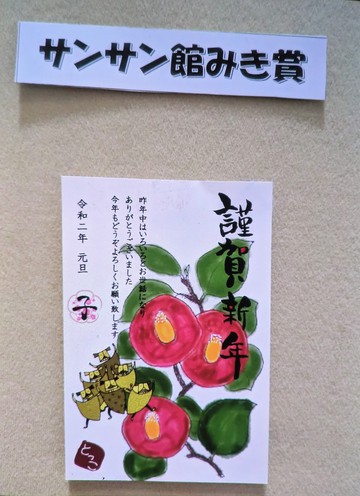 サンサン館みき賞
謹賀新年
昨年中はいろいろとお世話になり
ありがとうございました
今年もどうぞよろしくお願い致します
令和二年 元旦
子